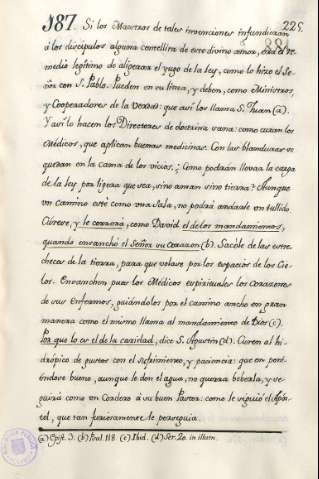 225.
187. Si los Maestros de tales invenciones infundieran
a los discipulos alguna centellica de este divino amor, era el re-
medio legitimo de aligerar el yugo de la Ley, como lo hizo el Se-
ñor con S. Pablo. Pueden en su linea, y deben, como Ministros
y Cooperadores de la VERDAD: que asi los llama S. Juan (a).
Y asi lo hacen los Directores de doctrina sana: como curan los
Medicos, que aplican buenas medicinas. Con las blanduras se
quedan en la cama de los vicios. ¿Como podràn llevar la carga
de la ley por ligera que sea, sino aman sino tierra? Aunque
un camino esté como una sala, no podrá andarle un tullido
Curese, y le correrà, como David el de los mandamientos,
quando ensanchó el Señor su Corazon (b). Saÿele de las estre-
checes de la tierra, para que volase por los espacios de los Cie-
los. Ensanchen pues los Medicos espirituales los Corazones
de sus Enfermos, guiandolos por el camino ancho en gran
manera como el mismo llama al mandamiento de Dios (c).
Por que lo es el de la caridad, dice S. Agustin (d). Curen al hi-
drópico de gustos con el sufrimiento, y paciencia: que en pon-
iendose bueno, aunque le den el agua, no querrá beberla, y se-
guirà como un Cordero à su buen Pastor: como le siguió el Apos-
tol, que tan furiosamente le perseguia.
(a) Epist. 3. (b) Psal. 118. (c) Ibid. (d) Ser. 20. in illum.